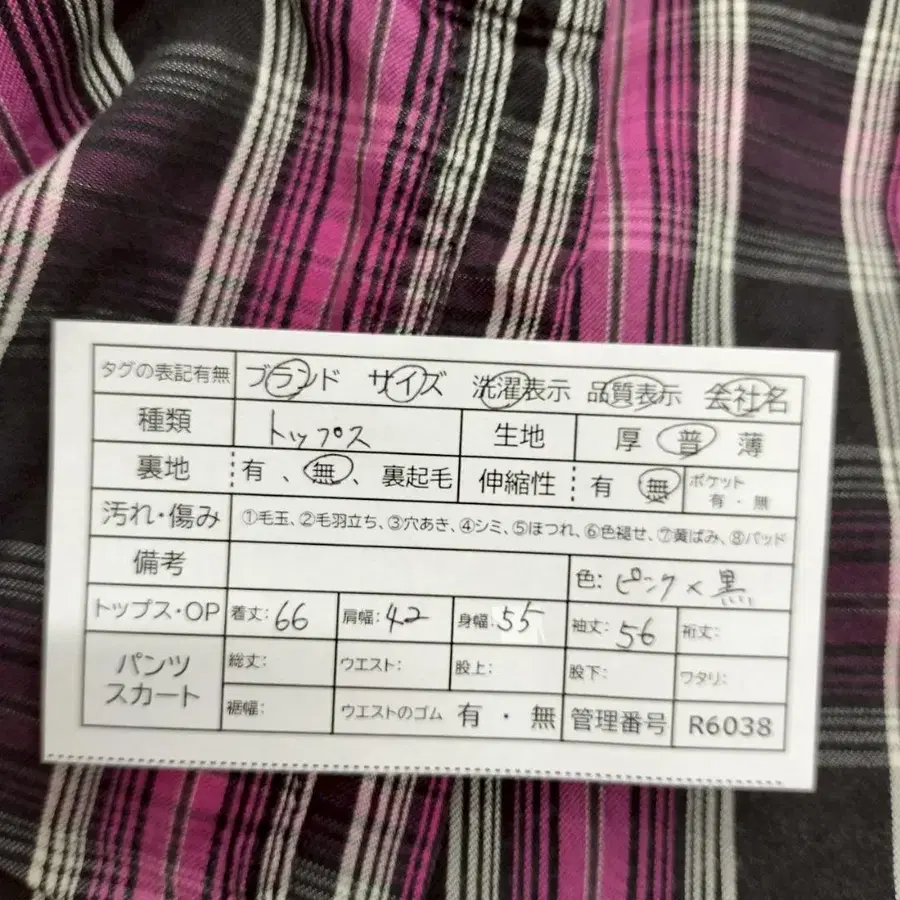 タグの表記有無 ブランド サイズ 洗濯表示 品質表示 会社名
種類 トップス 生地 厚 普 薄
裏地 有、無、裏起毛 伸縮性 有 無 ポケット 有・無
汚れ・傷み ①毛玉、②毛羽立ち、③穴あき、④シミ、⑤ほつれ、⑥色褪せ、⑦黄ばみ、⑧パッド
備考 色: ピンク×黒
トップス・OP 着丈: 66 肩幅: 42 身幅: 55 袖丈: 56 裄丈:
パンツ スカート 総丈: ウエスト: 股上: 股下: ワタリ:
裾幅: ウエストのゴム 有・無 管理番号 R6038